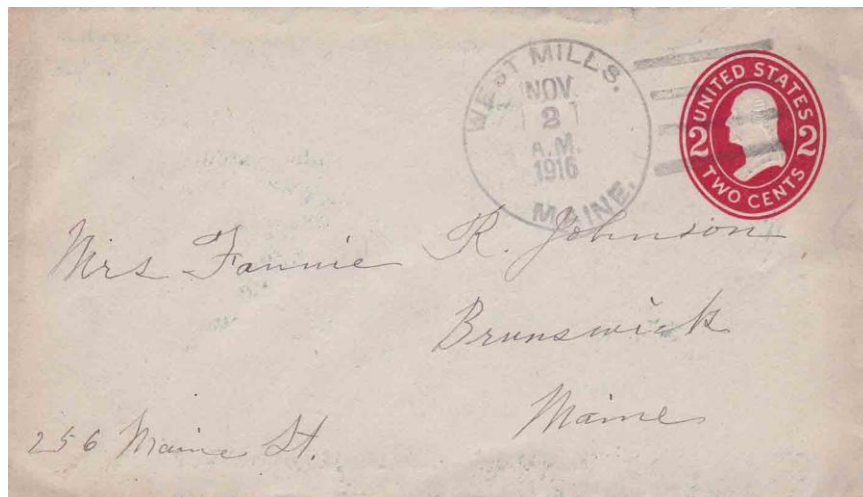 WEST MILLS.
NOV
2
A.M.
1916
MAINE.
UNITED STATES
2 2
TWO CENTS
Mrs Fannie R. Johnson
Brunswick
Maine
256 Maine St.